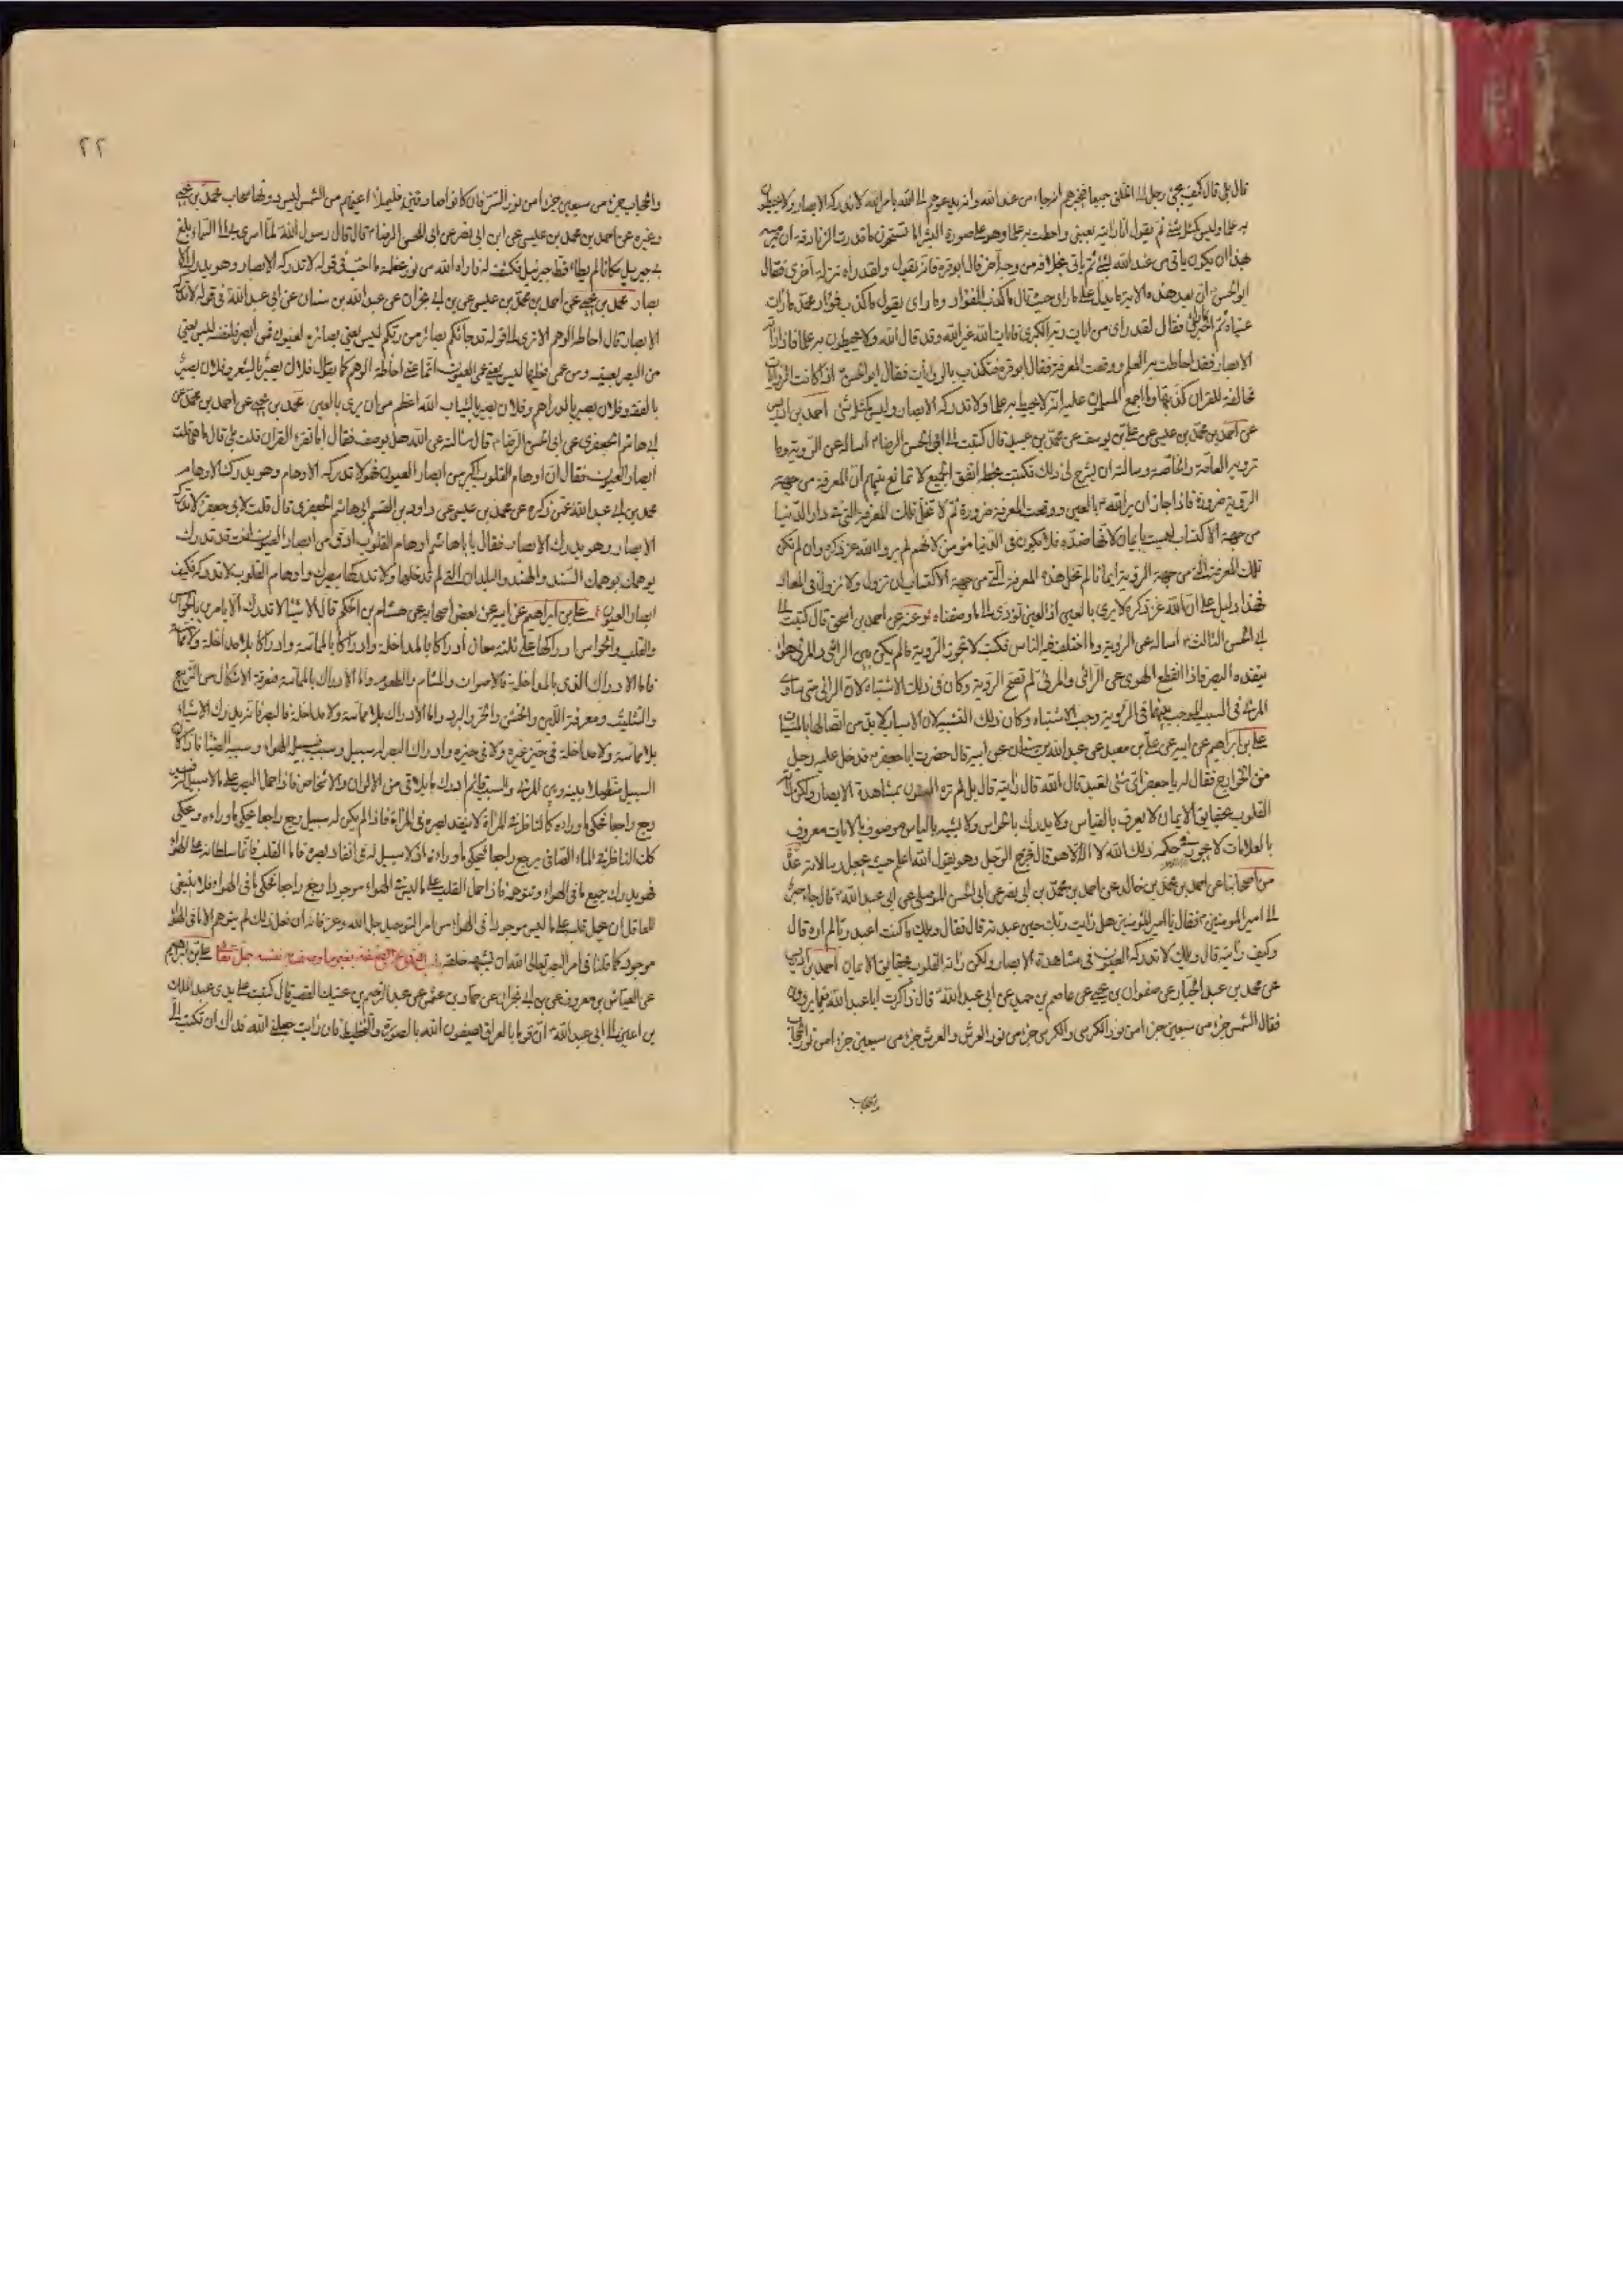 قال بلى قال كيف يجئ رجل الى الخلق جميعا فيخبرهم انه جاء من عند الله وانه يدعوهم الى الله بامر الله لا تدركه الابصار ولا يحيطون
به علما وليس كمثله شئ ثم يقول انا رايته بعيني واحطت به علما وهو على صورة البشر اما تستحون ما قدرت الزنادقة ان ترميه
بهذا ان يكون ياتي من عند الله بشئ ثم ياتي بخلافه من وجه آخر قال ابو قرة فانه يقول ولقد رآه نزلة اخرى فقال
ابو الحسن ان بعد هذه الاية ما يدل على ما راى حيث قال ما كذب الفؤاد وما راى يقول ما كذب فؤاد محمد ما رات
عيناه ثم اخبر فقال لقد راى من ايات ربه الكبرى فايات الله غير الله وقد قال الله ولا يحيطون به علما فاذا راته
الابصار فقد احاطت به العلم ووقعت المعرفة فقال ابو قرة فتكذب بالروايات فقال ابو الحسن اذا كانت الروايات
مخالفة للقران كذبتها وما اجمع المسلمون عليه انه لا يحاط به علما ولا تدركه الابصار وليس كمثله شئ احمد بن ادريس
عن احمد بن محمد بن عيسى عن علي بن سيف عن محمد بن عبيد قال كتبت الى ابي الحسن الرضا م اساله عن الروية وما
ترويه العامة والخاصة وسالته ان يشرح لي ذلك فكتبت بخطه اتفق الجميع لا تمانع بينهم ان المعرفة من جهة
الروية ضرورة فاذا جاز ان يرى الله م بالعين ووقعت المعرفة ضرورة ثم لا تخل تلك المعرفة التي في دار الدنيا
من جهة الاكتساب ليست بايمان لانها ضده فلا يكون في الدنيا مؤمن لانهم لم يروا الله عز ذكره وان لم تكن
تلك المعرفة التي من جهة الروية ايمانا لم تخل هذه المعرفة التي من جهة الاكتساب ان تزول ولا تزول في المعاد
فهذا دليل على ان الله عز ذكره لا يرى بالعين اذ العين تؤدي الى ما وصفناه وعنه عن احمد بن اسحق قال كتبت الى
ابي الحسن الثالث م اساله عن الروية وما اختلف فيه الناس فكتب لا تجوز الروية ما لم يكن بين الرائي والمرئي هواء
ينفذه البصر فاذا انقطع الهوى عن الرائي والمرئي لم تصح الروية وكان في ذلك الاشتباه لان الرائي متى ساوى
المرئي في السبب الموجب بينهما في الروية وجب الاشتباه وكان ذلك التشبيه لان الاسباب لا بد من اتصالها بالمسببات
علي بن ابراهيم عن ابيه عن علي بن معبد عن عبد الله بن سنان عن ابيه قال حضرت ابا جعفر م فدخل عليه رجل
من الخوارج فقال له يا جعفر اي شئ تعبد قال الله قال رايته قال بل لم تره العيون بمشاهدة الابصار ولكن راته
القلوب بحقايق الايمان لا يعرف بالقياس ولا يدرك بالحواس ولا يشبه بالناس موصوف بالايات معروف
بالعلامات لا يجور في حكمه ذلك الله لا اله الا هو قال فخرج الرجل وهو يقول الله اعلم حيث يجعل رسالاته عدة
من اصحابنا عن احمد بن محمد بن خالد عن احمد بن محمد بن ابي نصر عن ابي الحسن الموصلي عن ابي عبد الله م قال جاء حبر
الى امير المومنين م فقال يا امير المؤمنين هل رايت ربك حين عبدته قال فقال ويلك ما كنت اعبد ربا لم اره قال
وكيف رايته قال ويلك لا تدركه العيون في مشاهدة الابصار ولكن راته القلوب بحقايق الايمان احمد بن ادريس
عن محمد بن عبد الجبار عن صفوان بن يحيى عن عاصم بن حميد عن ابي عبد الله م قال ذاكرت ابا عبد الله فيما يروون
فقال الشمس جزء من سبعين جزءا من نور الكرسي والكرسي جزء من نور العرش والعرش جزء من سبعين جزءا من نور الحجاب
والحجاب
٢٢
والحجاب جزء من سبعين جزءا من نور الستر فان كانوا صادقين فليملؤا اعينهم من الشمس ليس دونها سحاب محمد بن يحيى
وغيره عن احمد بن محمد بن عيسى عن ابن ابي نصر عن ابي الحسن الرضا م قال قال رسول الله لما اسرى بي الى السماء بلغ
بي جبريل مكانا لم يطاه قط جبرئيل فكشف له فاراه الله من نور عظمته ما احب في قوله لا تدركه الابصار وهو يدرك الا
بصار محمد بن يحيى عن احمد بن محمد بن عيسى عن بن ابي نجران عن عبد الله بن سنان عن ابي عبد الله في قوله لا تدركه
الابصار قال احاطة الوهم الا ترى الى قوله قد جاءكم بصائر من ربكم ليس يعني بصائر العيون فمن ابصر فلنفسه ليس يعني
من البصر بعينه ومن عمي فعليها ليس يعني عمى العيون انما عنى احاطة الوهم كما يقال فلان بصير بالشعر وفلان بصير
بالفقه وفلان بصير بالدراهم وفلان بصير بالثياب الله اعظم من ان يرى بالعين محمد بن يحيى عن احمد بن محمد عن
ابي هاشم الجعفري عن ابي الحسن الرضا م قال سالته عن الله هل يوصف فقال اما تقرء القران قلت بلى قال ما هي قلت
ابصار العيون فقال ان اوهام القلوب اكبر من ابصار العيون فهو لا تدركه الاوهام وهو يدرك الاوهام
محمد بن ابي عبد الله عمن ذكره عن محمد بن عيسى عن داود بن القسم ابي هاشم الجعفري قال قلت لابي جعفر لا تدركه
الابصار وهو يدرك الابصار فقال يا با هاشم اوهام القلوب ادق من ابصار العيون انت قد تدرك
بوهمك السند والهند والبلدان التي لم تدخلها ولا تدركها ببصرك واوهام القلوب لا تدركه فكيف
ابصار العيون علي بن ابراهيم عن ابيه عن بعض اصحابه عن هشام بن الحكم قال الاشيا لا تدرك الا بامرين بالحواس
والقلب والحواس ادراكها على ثلثة معان ادراكا بالمداخلة وادراكا بالمماسة وادراكا بلا مداخلة ولا مماسة
فاما الادراك الذي بالمداخلة فالاصوات والمشام والطعوم واما الادراك بالمماسة فمعرفة الاشكال من التربيع
والتثليث ومعرفة اللين والخشن والحر والبرد واما الادراك بلا مماسة ولا مداخلة فالبصر فانه يدرك الاشياء
بلا مماسة ولا مداخلة في حيز غيره ولا في حيزه وادراك البصر له سبيل وسبب فسبيله الهواء وسببه الضيا فاذا كان
السبيل متصلا بينه وبين المرئي والسبب قائم ادرك ما يلاقي من الالوان والاشخاص فاذا حمل البصر على ما لا سبيل له فيه
رجع راجعا فحكى ما وراءه كالناظر في المرآة لا ينفذ بصره في المرآة فاذا لم يكن له سبيل رجع راجعا يحكي ما وراءه وحكى
كذلك الناظر في الماء الصافي يرجع راجعا فيحكي ما وراءه اذ لا سبيل له في انفاذ بصره فاما القلب فانما سلطانه على الهواء
فهو يدرك جميع ما في الهواء ويتوهمه فاذا حمل القلب على ما ليس في الهواء موجودا رجع راجعا فحكى ما في الهواء فلا ينبغي
للعاقل ان يحمل قلبه على ما ليس موجودا في الهواء من امر التوحيد جل الله وعز فانه ان فعل ذلك لم يتوهم الا ما في الهواء
موجود كما قلنا في امر البصر تعالى الله ان يشبهه خلقه باب النهي عن الصفة بغير ما وصف به نفسه جل تعالى علي بن ابراهيم
عن العباس بن معروف عن بن ابي نجران عن حماد بن عثمان عن عبد الرحيم بن عتيك القصير قال كتبت على يدي عبد الملك
بن اعين الى ابي عبد الله م ان قوما بالعراق يصفون الله بالصورة والتخطيط فان رايت جعلني الله فداك ان تكتب الي